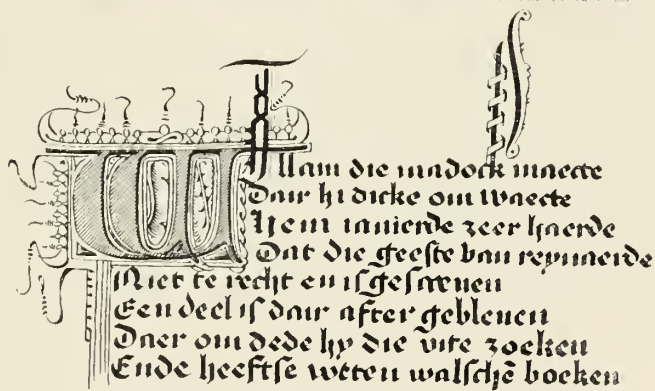 Willam die madock maecte
Dair hi dicke om waecte
Hem iamerde zeer haerde
Dat die geeste van reynaerde
Niet te recht en is gescreuen
Een deel is dair after gebleuen
Daer om dede hy die vite zoeken
Ende heeftse wtten walschē boeken